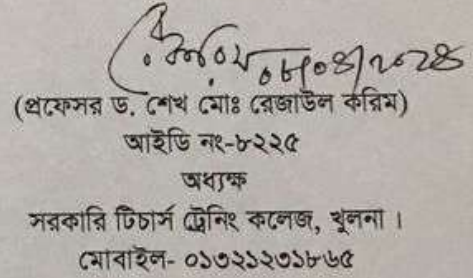 ০৮/০৪/২০২৪
(প্রফেসর ড. শেখ মোঃ রেজাউল করিম)
আইডি নং-৮২২৫
অধ্যক্ষ
সরকারি টিচার্স ট্রেনিং কলেজ, খুলনা ।
মোবাইল- ০১৩২১২৩১৮৬৫